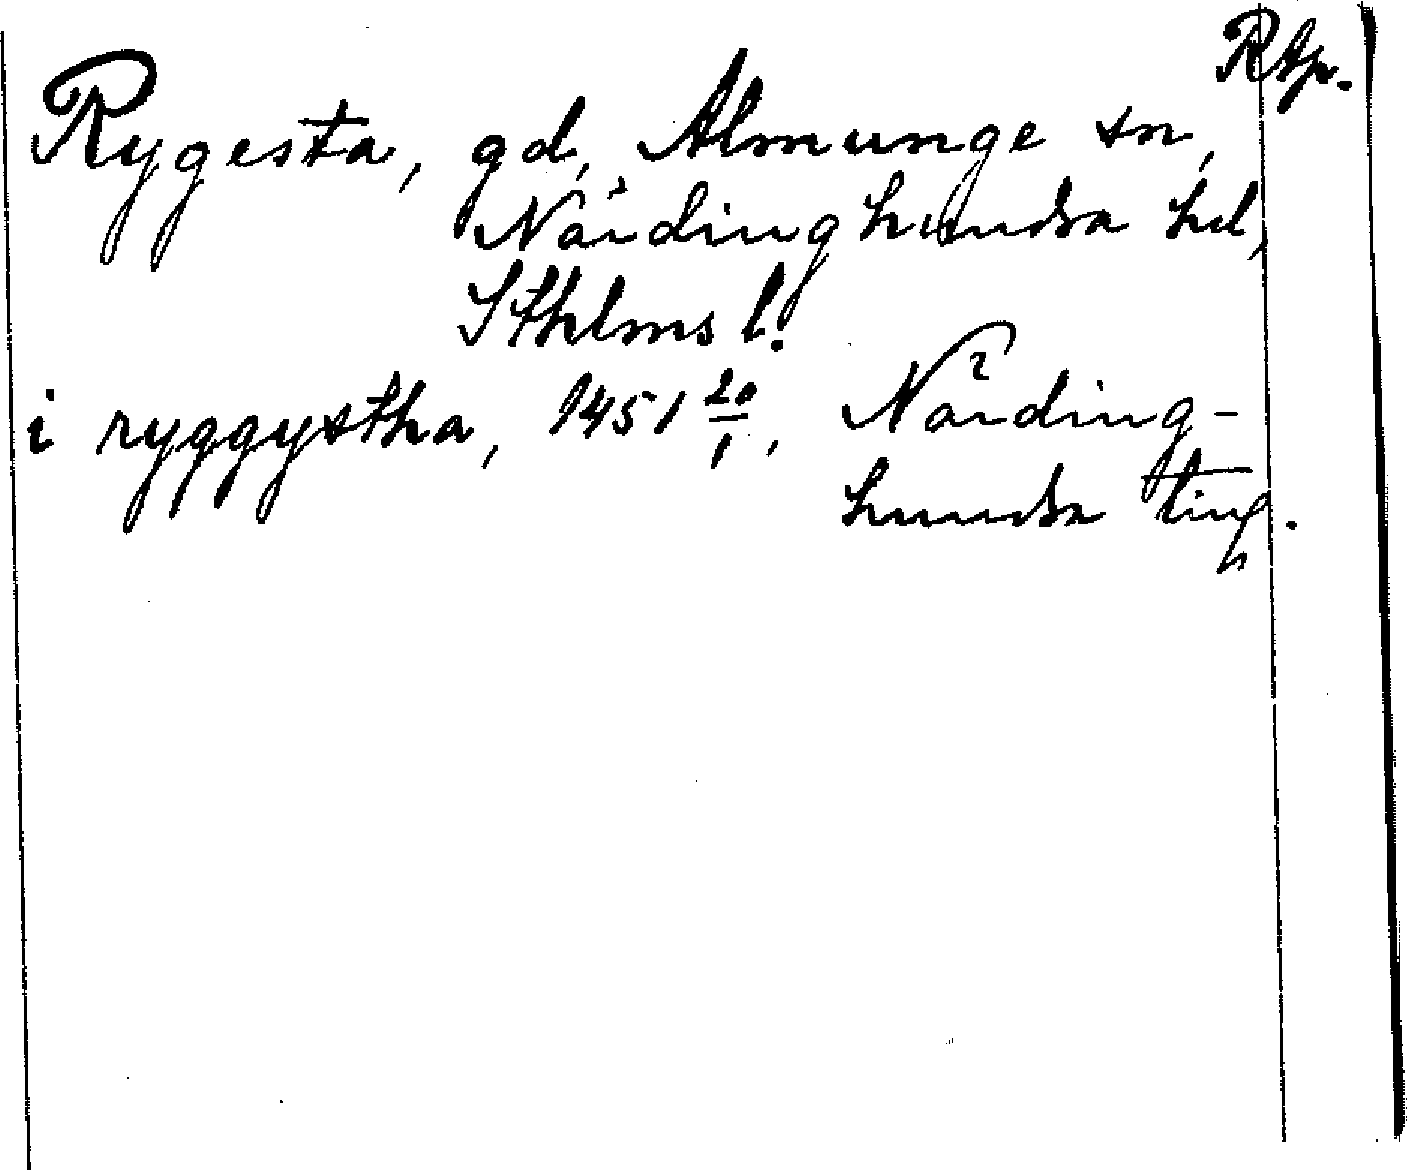 RAp.
Rygesta, gd, Almunge sn,
Närdinghundra hd,
Sthlms l.
i ryggystha, 1451 20/1, Närding-
hundra ting.